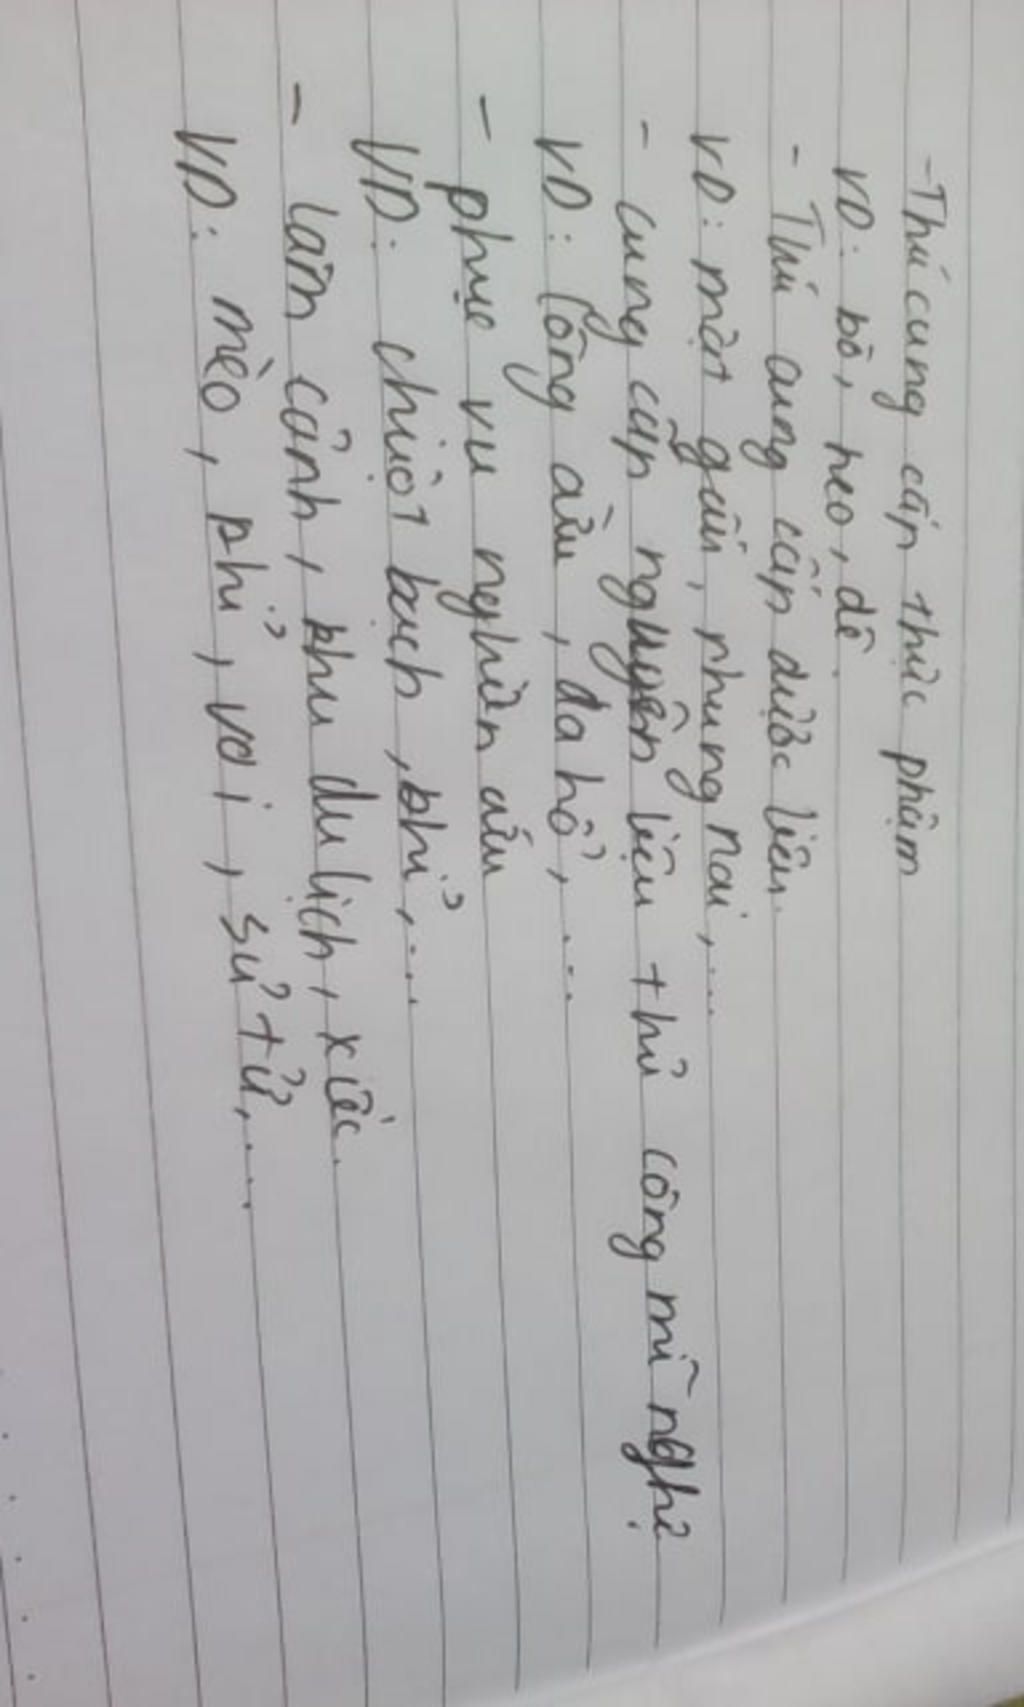 - Thú cung cấp thực phẩm
VD: bò, heo, dê.
- Thú cung cấp dược liệu.
VD: mật gấu, nhung nai,...
- cung cấp nguyên liệu thủ công mĩ nghệ
VD: lông cừu, da hổ,...
- phục vụ nghiên cứu
VD: chuột bạch, khỉ,...
- làm cảnh, khu du lịch, xiếc.
VD: mèo, khỉ, voi, sư tử,...